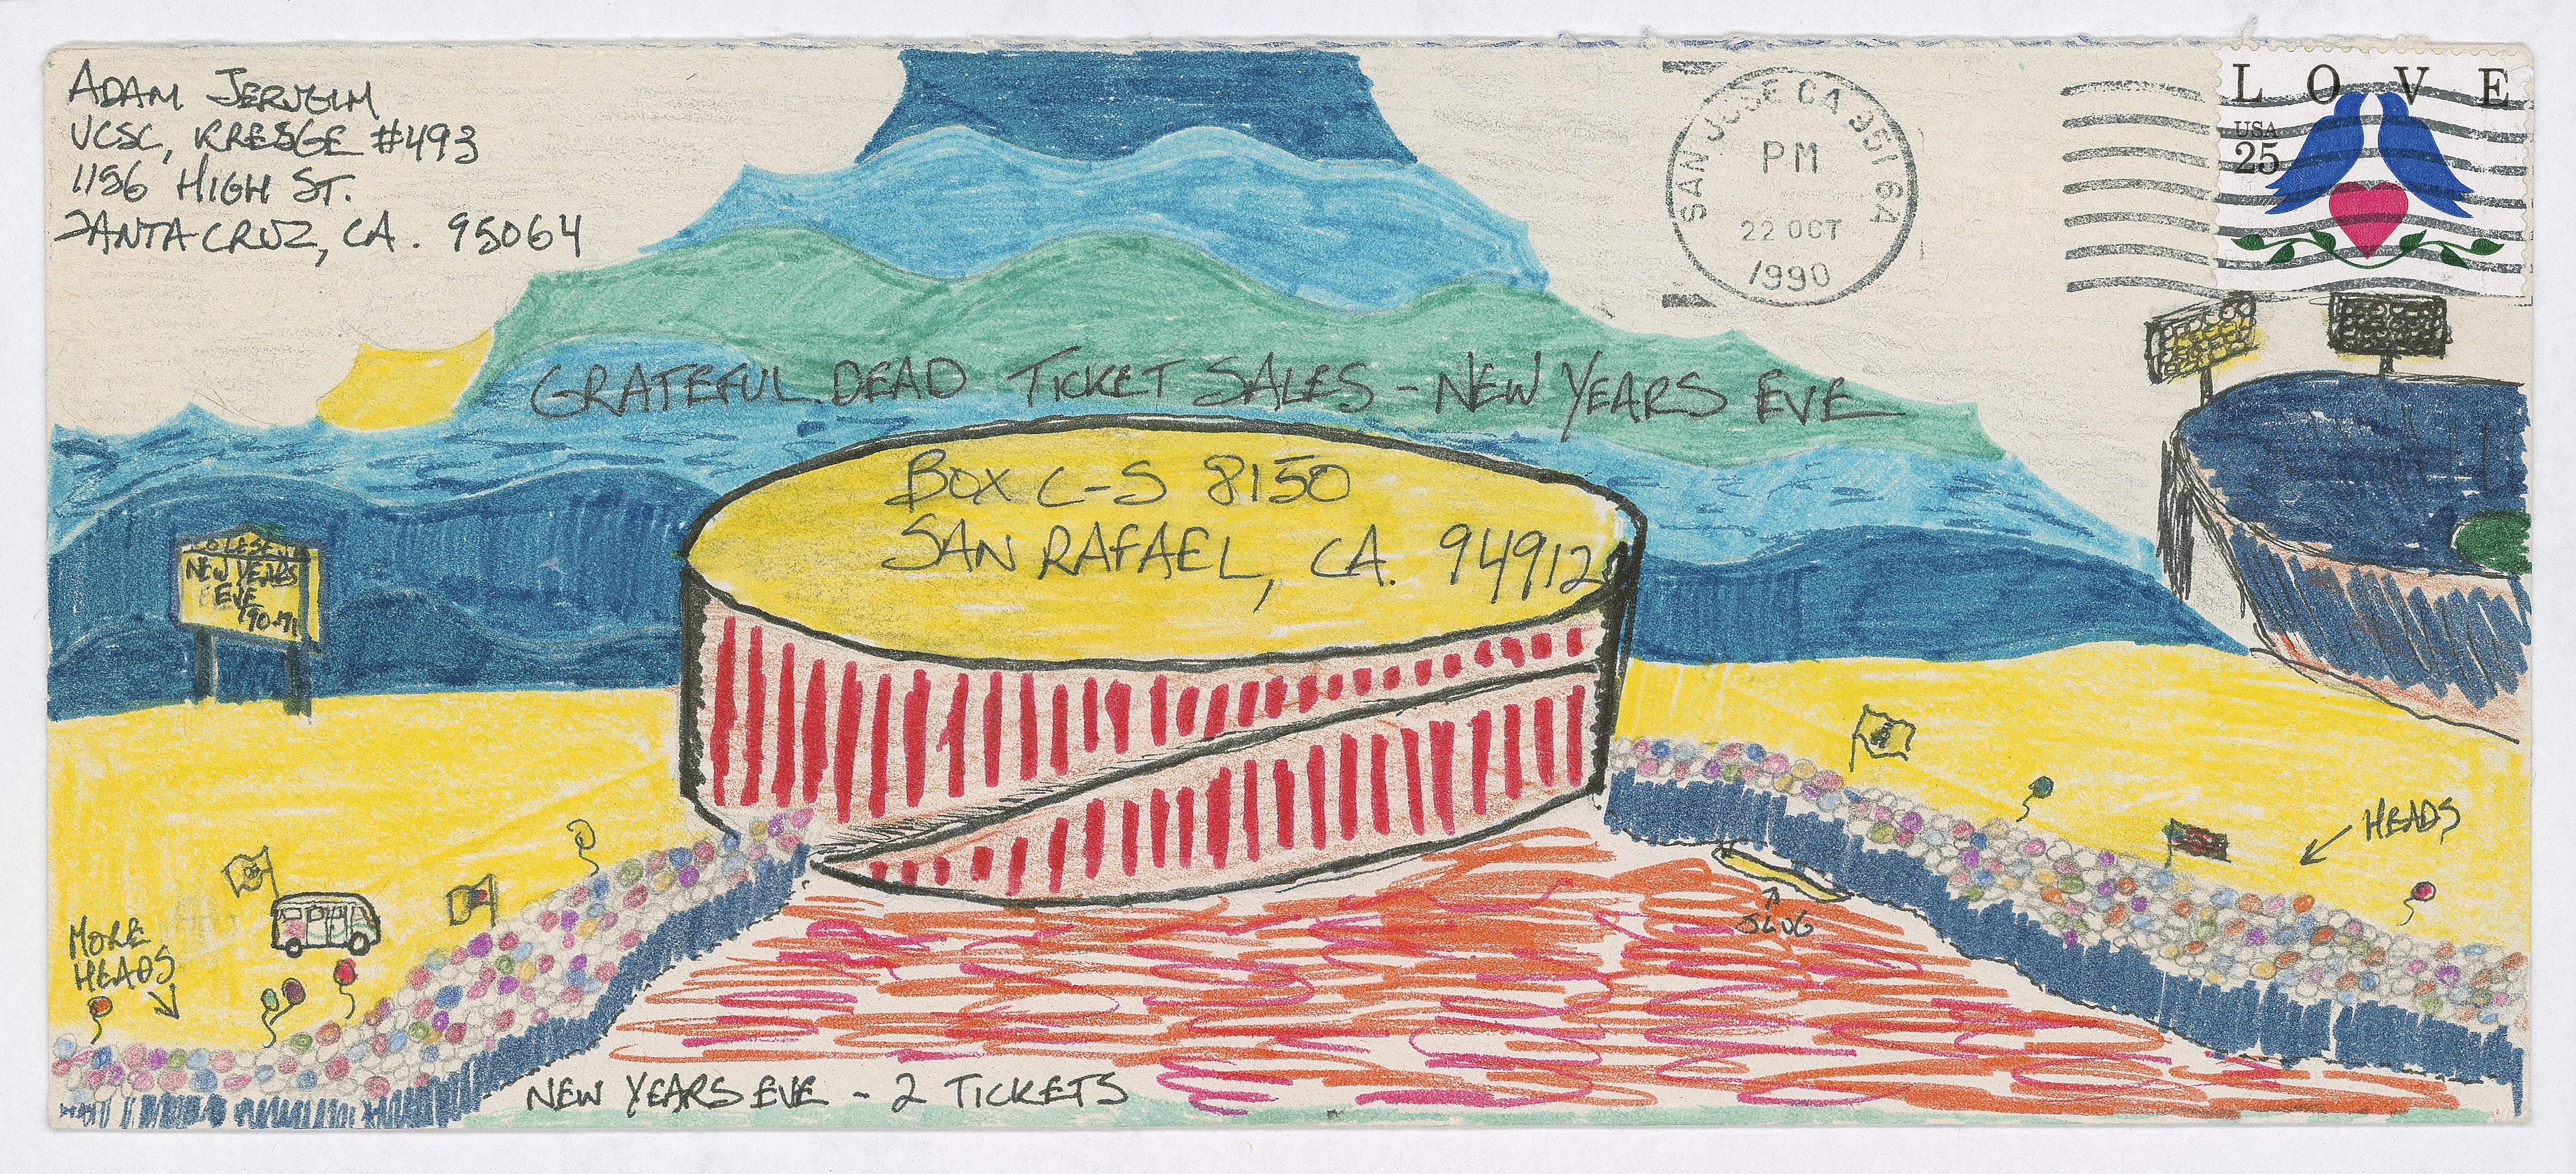 ADAM
UCSC, KRESGE #493
1156 HIGH ST.
SANTA CRUZ, CA. 95064
SAN JOSE CA 951 64
PM
22 OCT
1990
L O V E
USA
25
GRATEFUL DEAD TICKET SALES - NEW YEARS EVE
BOX C-S 8150
SAN RAFAEL, CA. 94912
NEW YEARS
EVE
'90-'91
HEADS
SLUG
MORE
HEADS
NEW YEARS EVE - 2 TICKETS